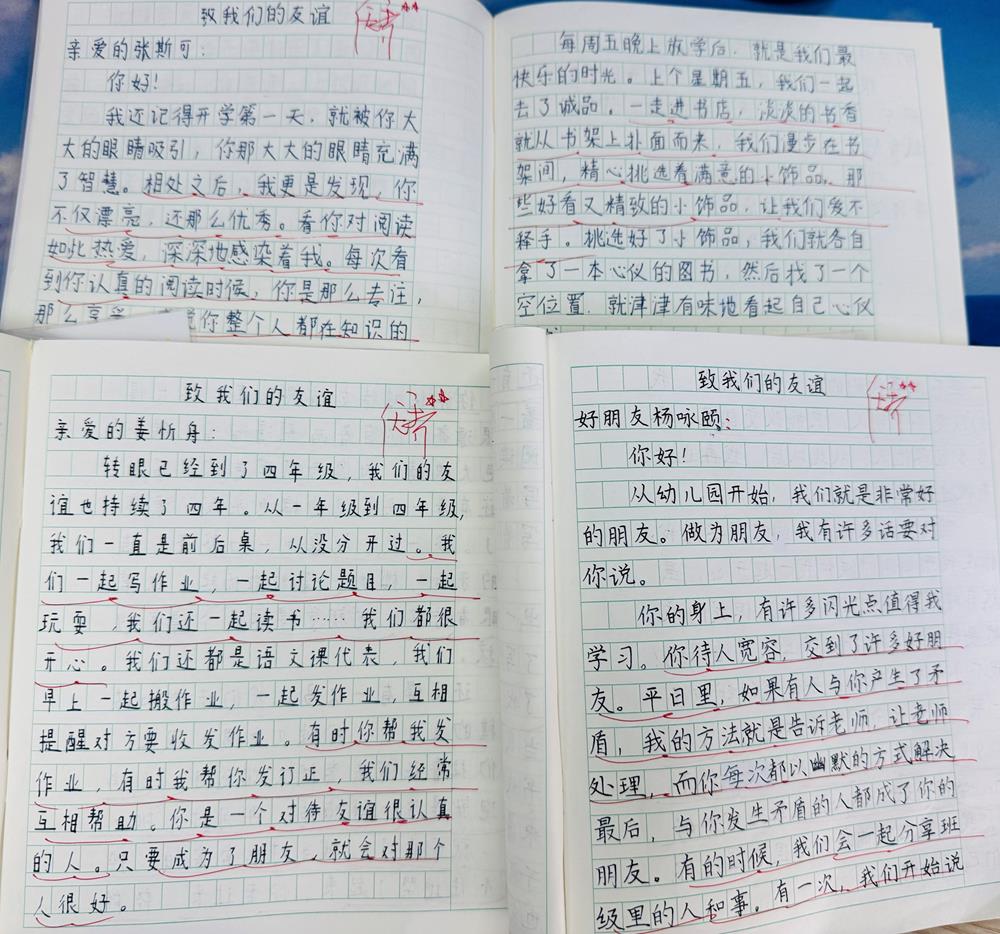 致我们的友谊
亲爱的张斯可：
你好！
我还记得开学第一天，就被你大
大的眼睛吸引，你那大大的眼睛充满
了智慧。相处之后，我更是发现，你
不仅漂亮，还那么优秀。看你对阅读
如此热爱，深深地感染着我。每次看
到你认真的阅读时候，你是那么专注，
那么享受，你整个人都在知识的
每周五晚上放学后，就是我们最
快乐的时光。上个星期五，我们一起
去了诚品。一走进书店，淡淡的书香
就从书架上扑面而来，我们漫步在书
架间，精心挑选着满意的小饰品，那
些好看又精致的小饰品，让我们爱不
释手。挑选好了小饰品，我们就各自
拿了一本心仪的图书，然后找了一个
空位置，就津津有味地看起自己心仪
致我们的友谊
亲爱的姜忻身：
转眼已经到了四年级，我们的友
谊也持续了四年。从一年级到四年级，
我们一直是前后桌，从没分开过。我
们一起写作业，一起讨论题目，一起
玩耍，我们还一起读书……我们都很
开心。我们还都是语文课代表，我们
早上一起搬作业，一起发作业，互相
提醒对方要收发作业。有时你帮我发
作业，有时我帮你发订正，我们经常
互相帮助。你是一个对待友谊很认真
的人。只要成为了朋友，就会对那个
人很好。
致我们的友谊
好朋友杨咏颐：
你好！
从幼儿园开始，我们就是非常好
的朋友。做为朋友，我有许多话要对
你说。
你的身上，有许多闪光点值得我
学习。你待人宽容，交到了许多好朋
友。平日里，如果有人与你产生了矛
盾，我的方法就是告诉老师，让老师
处理，而你每次都以幽默的方式解决
最后，与你发生矛盾的人都成了你的
朋友。有的时候，我们会一起分享班
级里的人和事。有一次，我们开始说